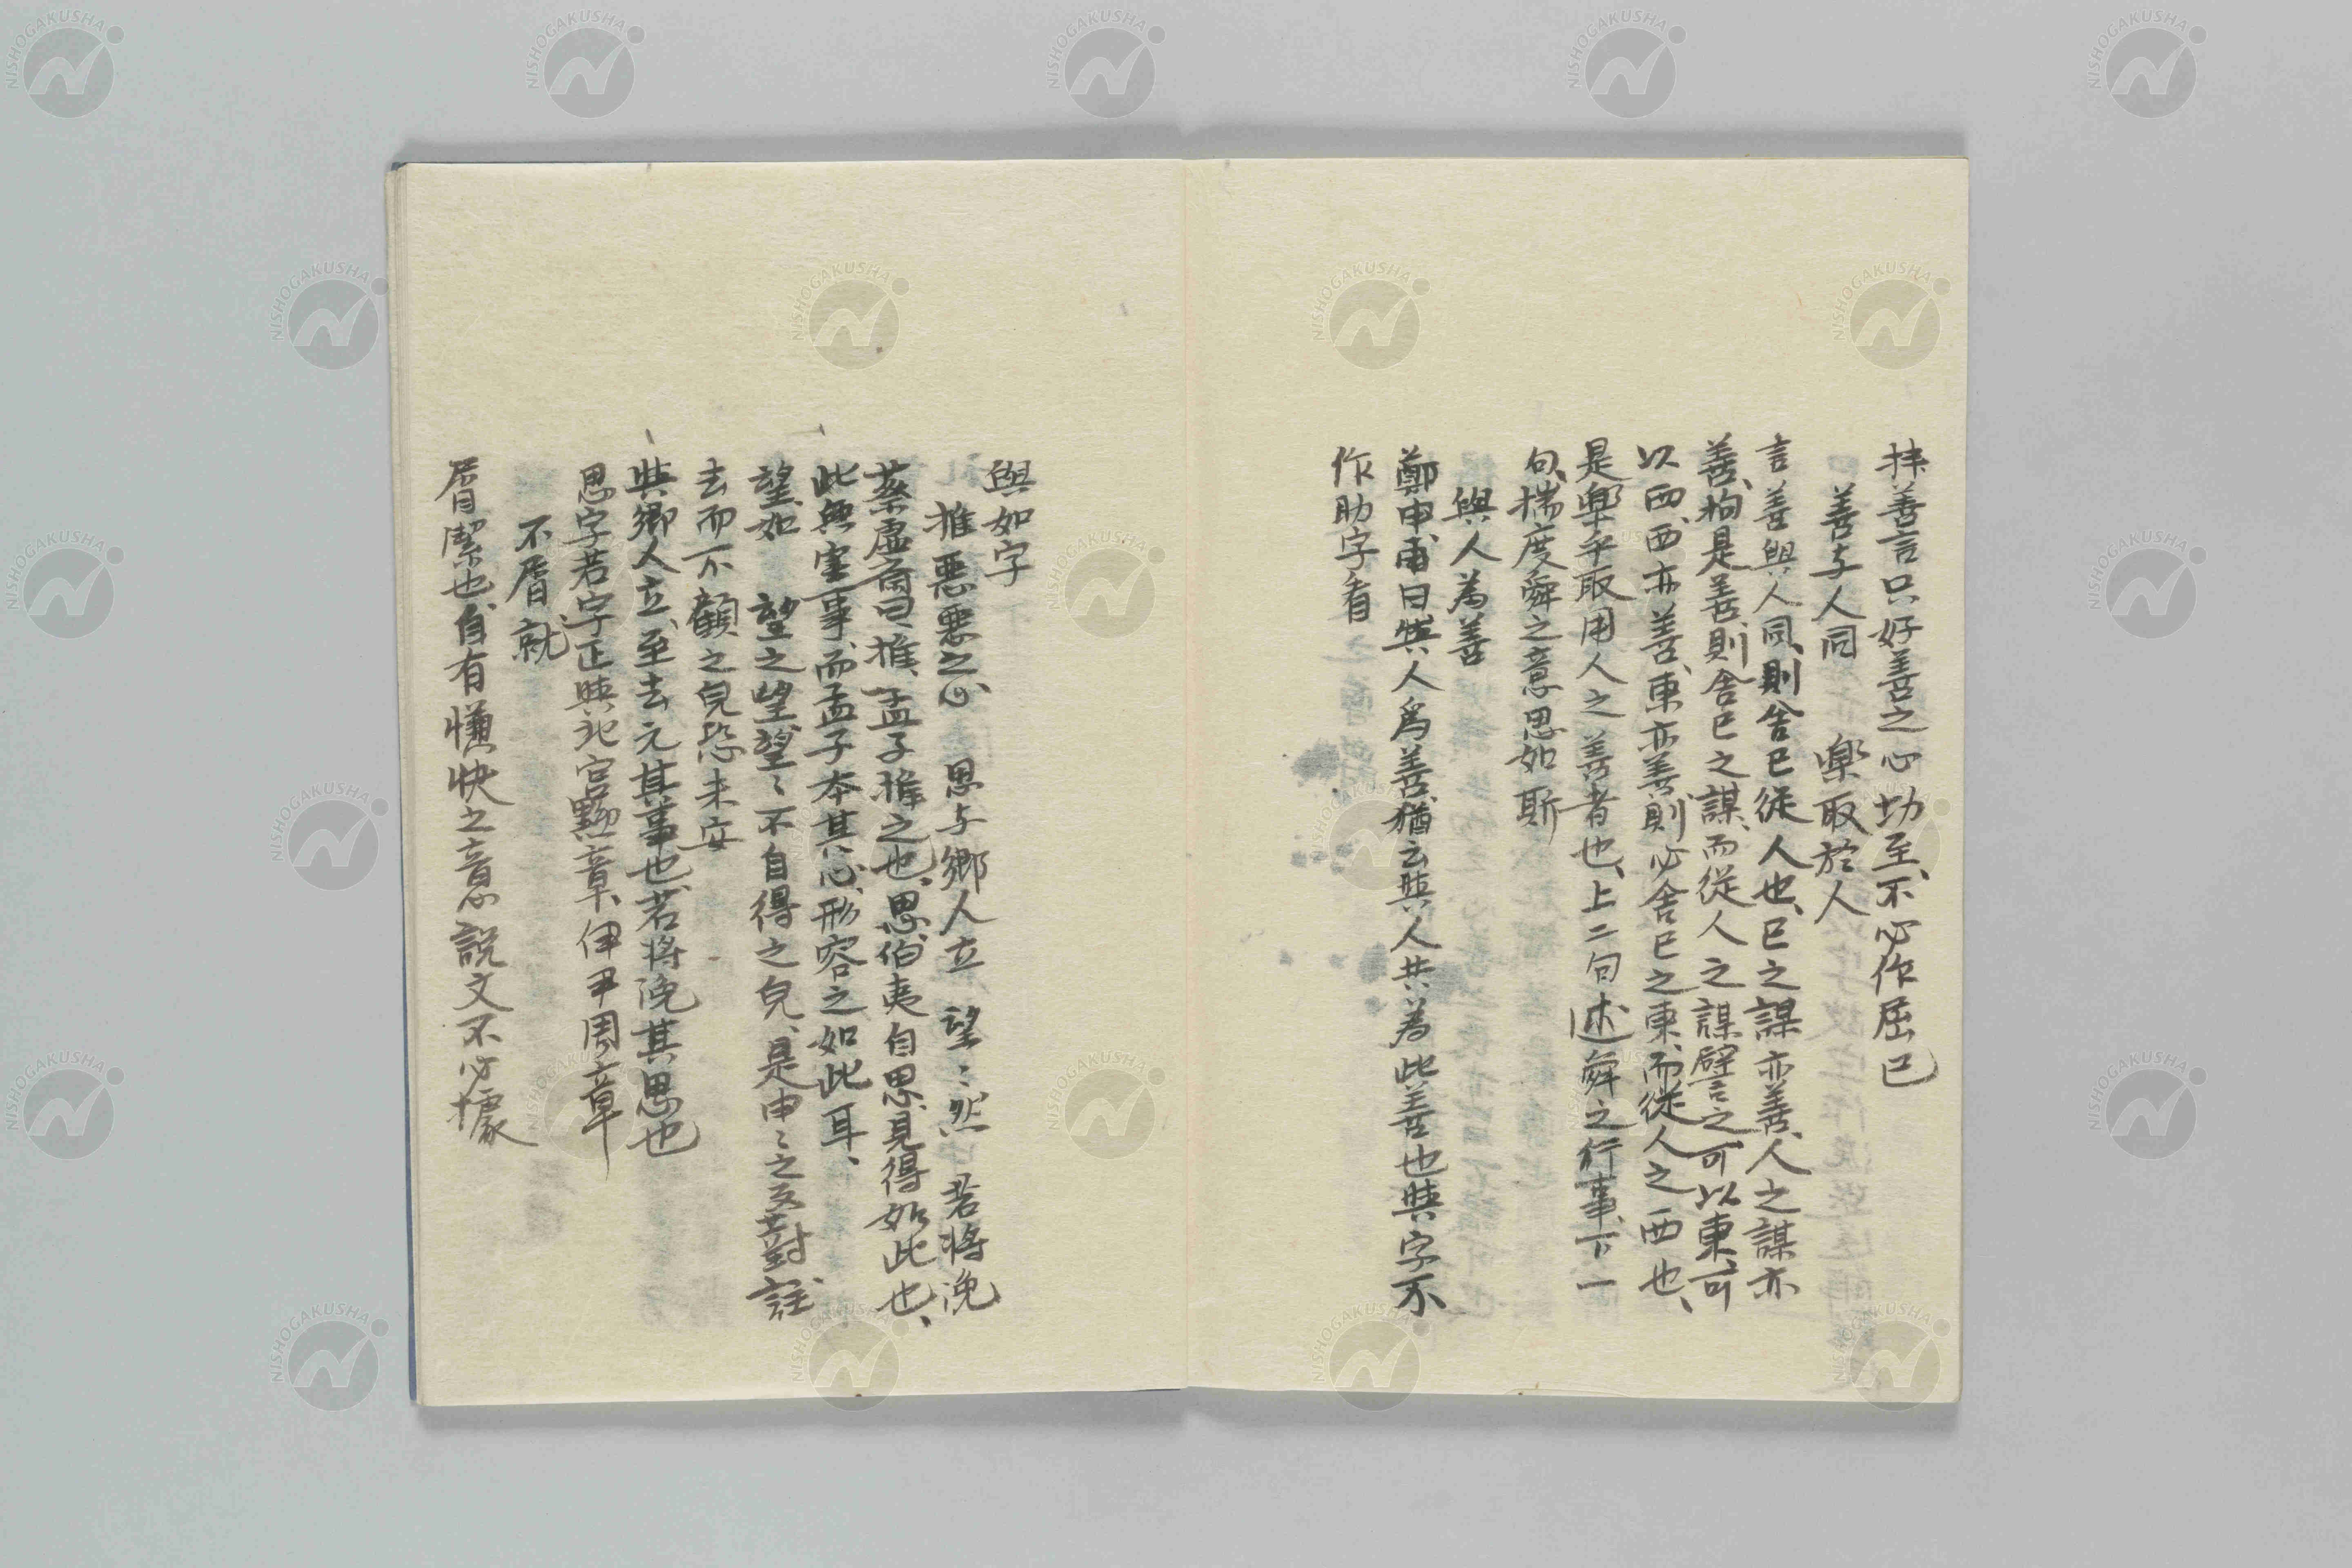 拜善言只好善之心切至、不必作屈己
善与人同　楽取於人
言善與人同、則舍己従人也、己之謀亦善、人之謀亦
善、拘是善則舍己之謀、而従人之謀、譬言之可以東、可
以西、西亦善、東亦善、則必舍己之東、而従人之西也、
是樂乎取用人之善者也、上二句述舜之行事、下一
句、揣度舜之意思如斯
與人為善
鄭申甫曰與人爲善、猶云與人共為此善也與字不
作助字看
與如字
推惡惡之心　思与鄉人立　望〻然　若将浼
蔡虛齋曰、推、孟子推之也、思、伯夷自思、見得如此也、
此無実事、而孟子本其心、形容之如此耳、
望如　望之望、望〻不自得之皃、是申〻之反對、註
去而不顧之皃恐未安
與鄉人立、至去元其事也、若将浼其思也
思字若字正與北宮黝章、伊尹周章
不屑就
屑潔也、自有慊快之意、説文不必據